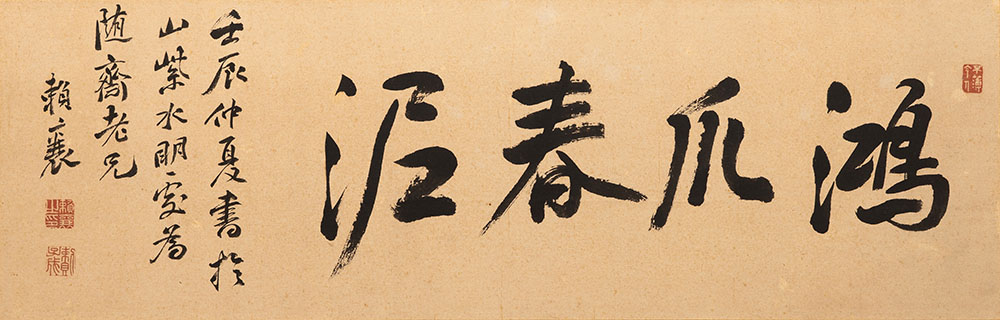 鴻爪春泥
壬辰仲夏書於
山紫水明處為
随齋老兄
賴襄